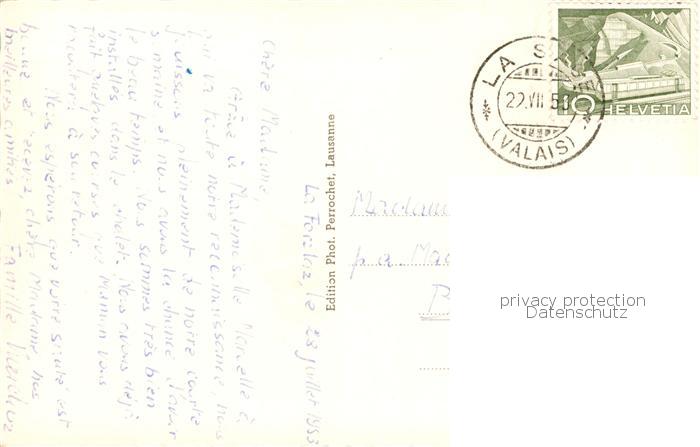 La Forclaz, le 28 juillet 1953
Chère Madame,
Grâce à Mademoiselle Marcelle à
qui va toute notre reconnaissance, nous
jouissons pleinement de notre
semaine et nous avons la chance d'avoir
le beau temps. Nous sommes très bien
installés dans le chalet. Nous avons déjà
fait quelques courses que Maman vous
racontera à son retour.
Nous espérons que votre santé est
bonne et recevez, chère Madame, nos
meilleures amitiés
Famille
Edition Phot. Perrochet, Lausanne
LA SAGE
(VALAIS)
HELVETIA
10
Madame
p. a.
privacy protection
Datenschutz